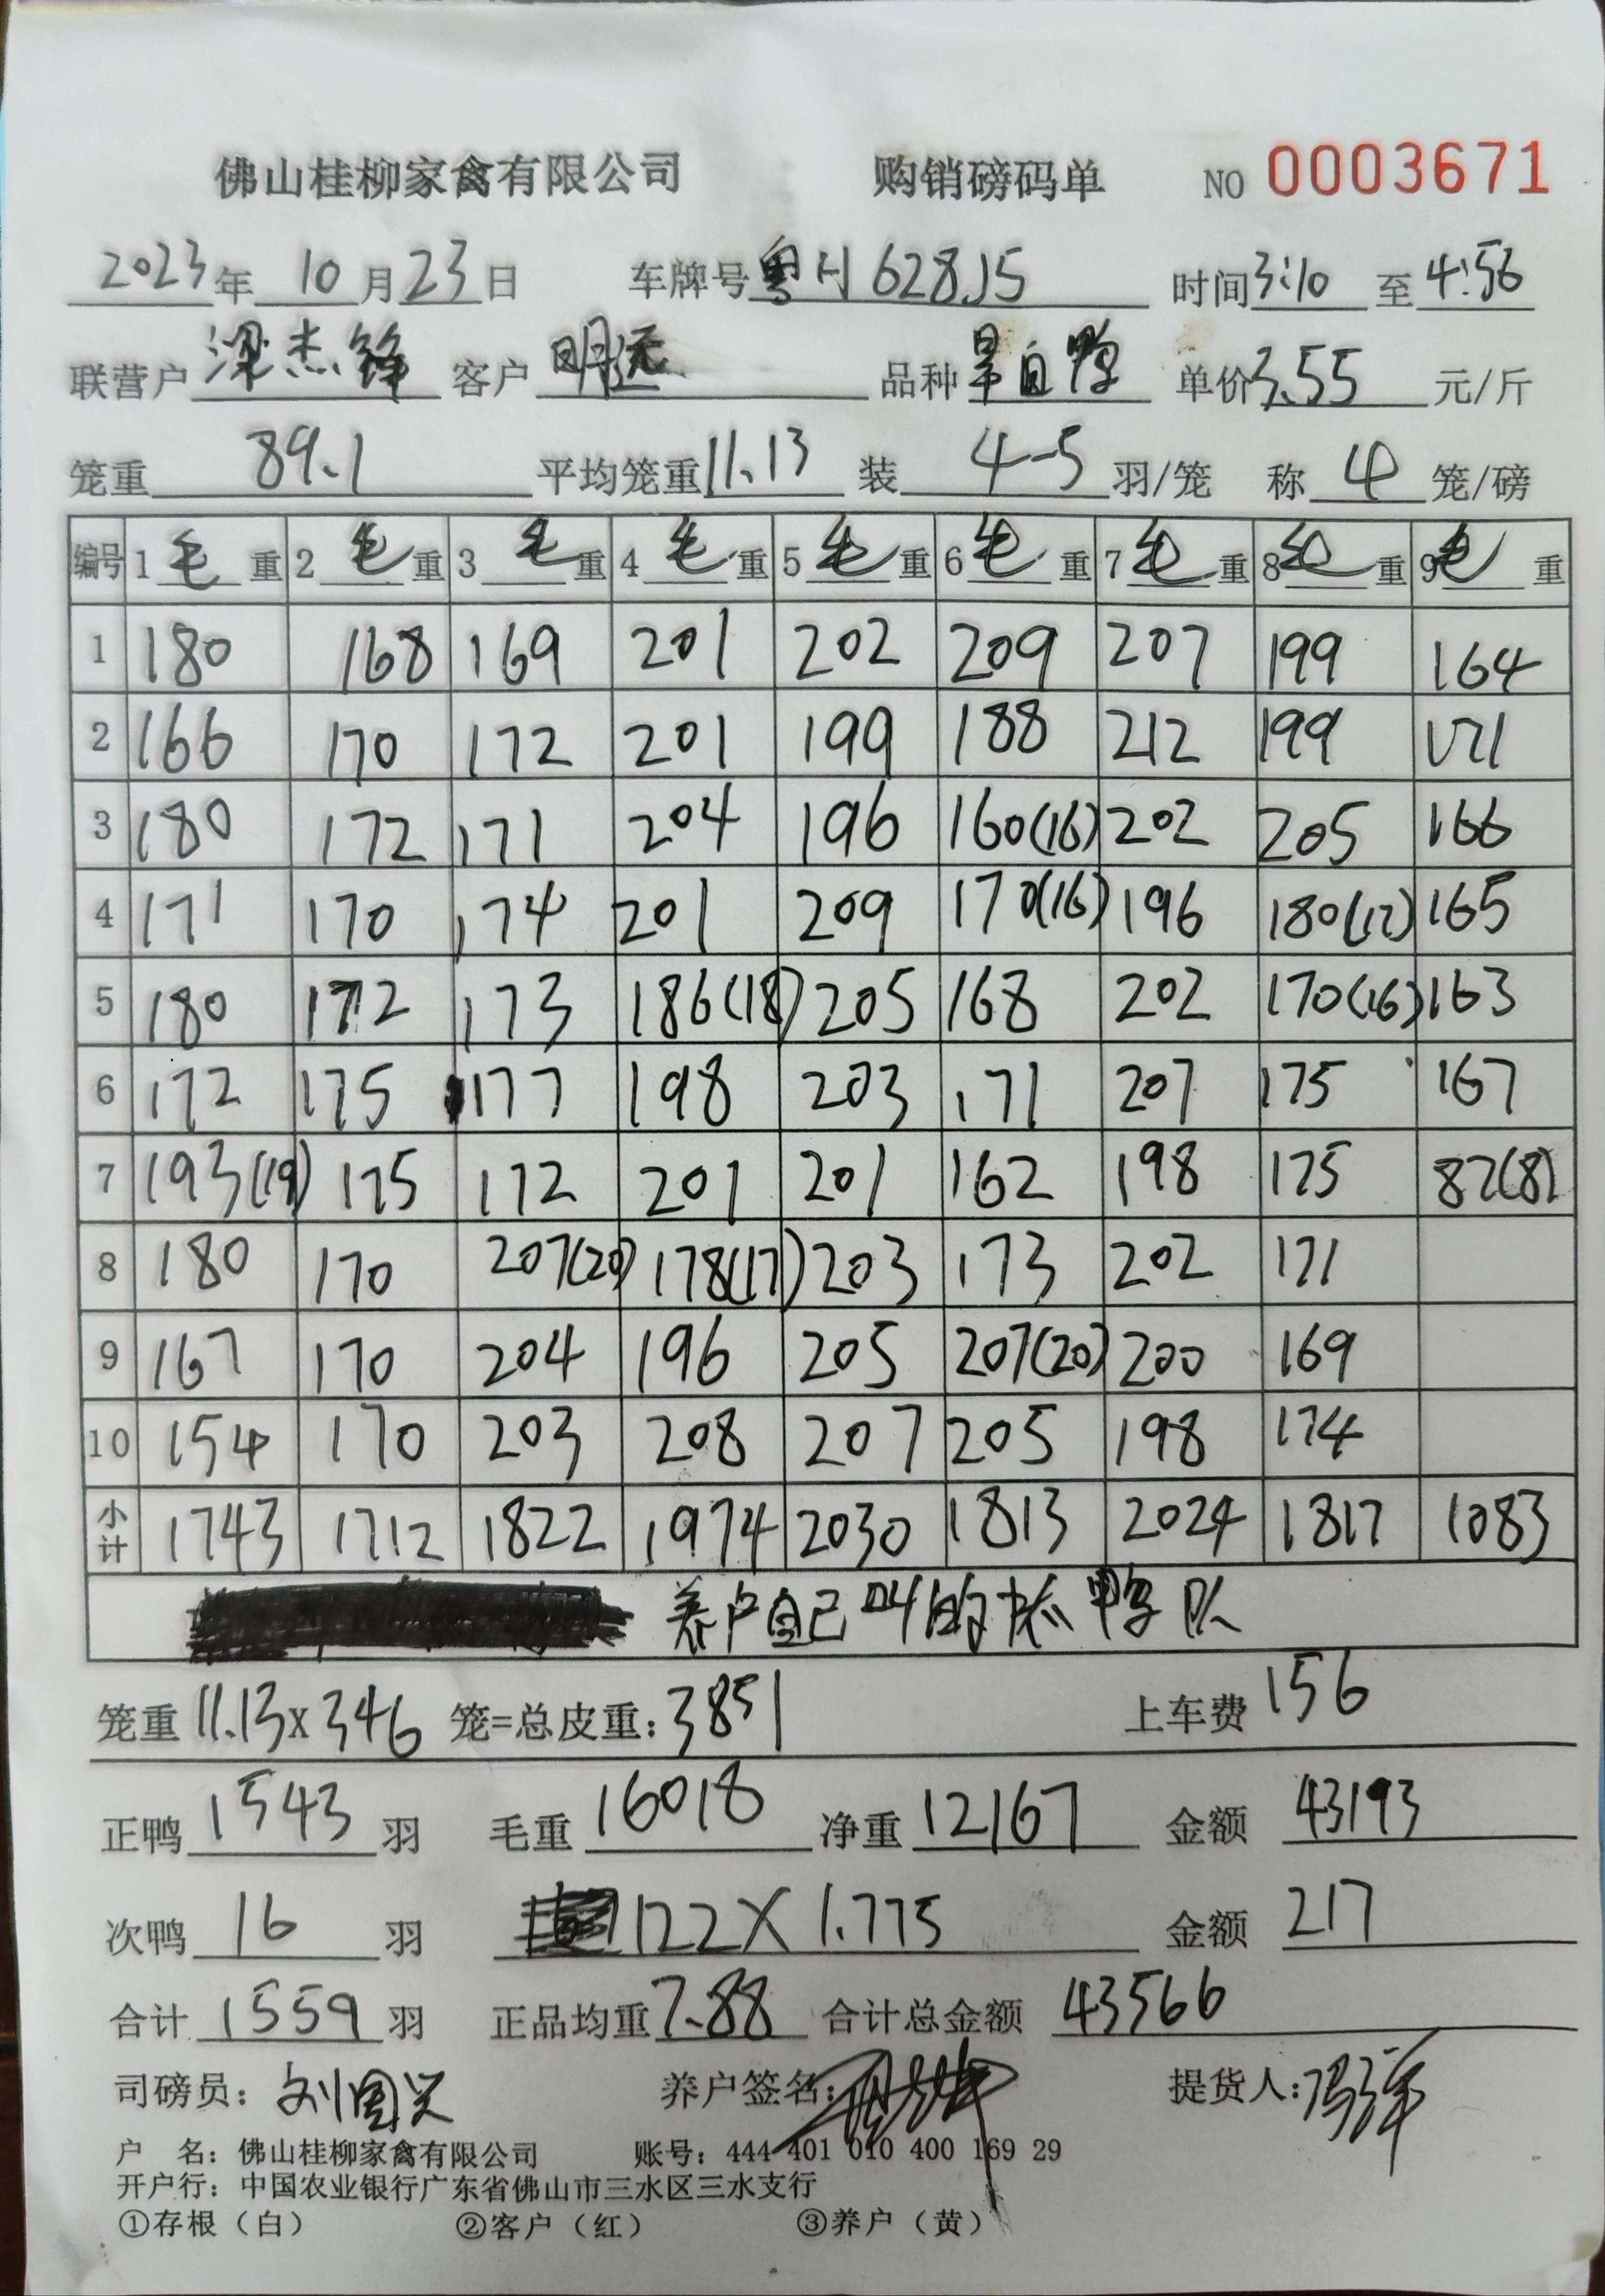 佛山桂柳家禽有限公司 购销磅码单 NO 0003671
2023年 10月23日 车牌号粤H628J5 时间3:10 至4:56
联营户 梁杰锋 客户 明远 品种 旱白鸭 单价3.55 元/斤
笼重 89.1 平均笼重11.13 装 4-5 羽/笼 称 4 笼/磅
编号 1 毛 重 2 毛 重 3 毛 重 4 毛 重 5 毛 重 6 毛 重 7 毛 重 8 毛 重 9 毛 重
1 180 168 169 201 202 209 207 199 164
2 166 170 172 201 199 188 212 199 171
3 180 172 171 204 196 160(16) 202 205 166
4 171 170 174 201 209 170(16) 196 180(17) 165
5 180 172 173 186(18) 205 168 202 170(16) 163
6 172 175 177 198 203 171 207 175 167
7 193(19) 175 172 201 201 162 198 175 87(8)
8 180 170 207(20) 178(17) 203 173 202 171
9 167 170 204 196 205 207(20) 200 169
10 154 170 203 208 207 205 198 174
小计 1743 1712 1822 1974 2030 1813 2024 1817 1083
养户自己叫的抓鸭队
笼重 11.13x346 笼=总皮重：3851 上车费 156
正鸭 1543 羽 毛重 16018 净重 12167 金额 43193
次鸭 16 羽 122X1.775 金额 217
合计 1559 羽 正品均重 7.88 合计总金额 43566
司磅员：刘国兴 养户签名： 提货人：
户 名：佛山桂柳家禽有限公司 账号：444 401 010 400 169 29
开户行：中国农业银行广东省佛山市三水区三水支行
①存根（白） ②客户（红） ③养户（黄）